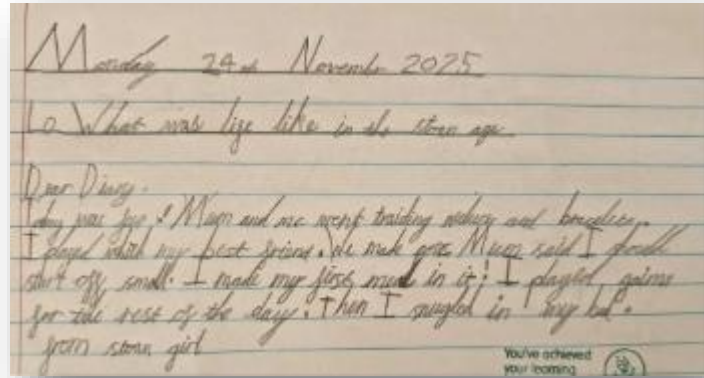 Monday 24th November 2025
Lo What was lige like in the stoen age
Dear Diary.
day was Mum and me went traiding and
I played with my best friend. We made Mum said I
start off small. I made my first in it! I played
for the rest of the day. Then I snugled in my
from stoen girl
You've achieved
your learning